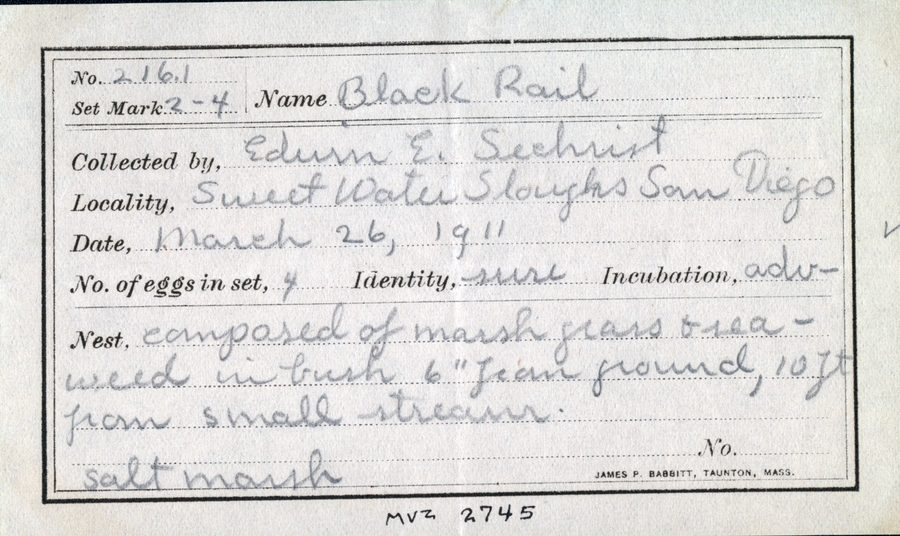 No. 216.1
Set Mark 2-4 Name Black Rail
Collected by, Edwin E. Sechrist
Locality, Sweet Water Sloughs San Diego
Date, March 26, 1911
No. of eggs in set, 4 Identity, sure Incubation, adv-
Nest, composed of marsh grass & sea-
weed in bush 6" from ground, 10 ft
from small stream.
No.
salt marsh
JAMES P. BABBITT, TAUNTON, MASS.
MVZ 2745